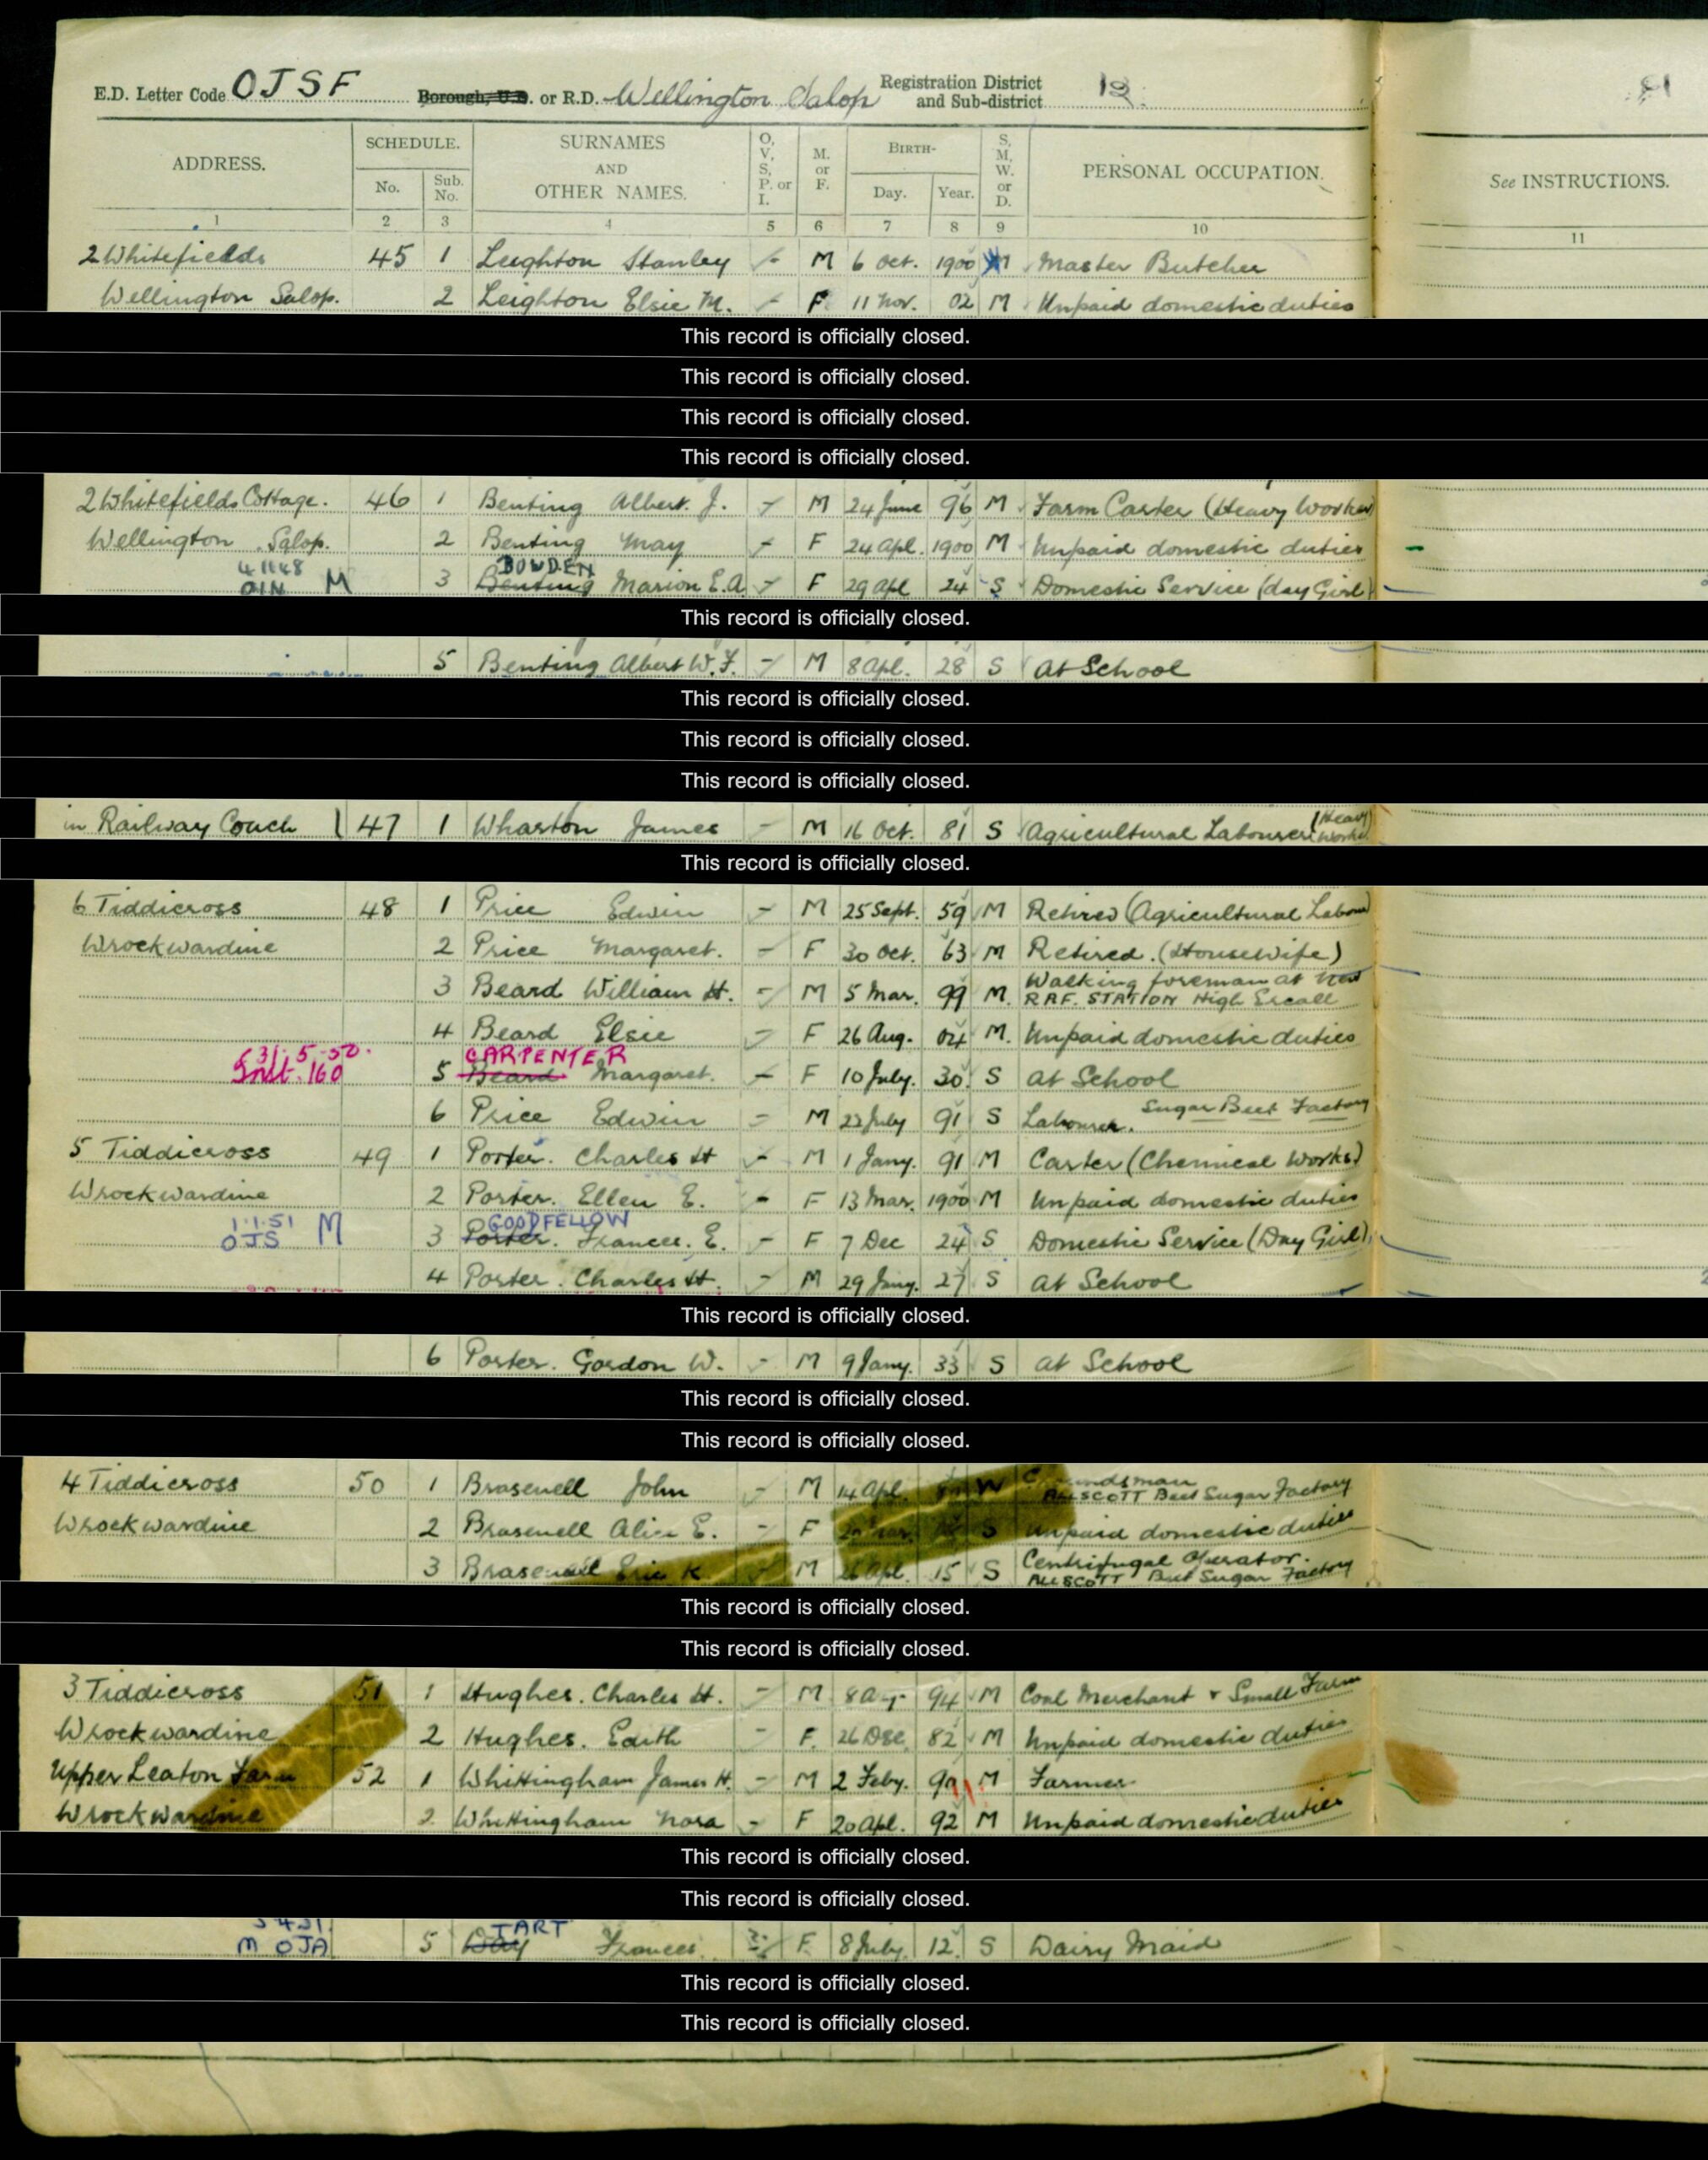 E.D. Letter Code OJSF Borough, U.D. or R.D. Wellington Salop Registration District and Sub-district
ADDRESS. SCHEDULE. No. Sub. No. SURNAMES AND OTHER NAMES. O, V, S, P. or I. M. or F. BIRTH- Day. Year. S, M, W. or D. PERSONAL OCCUPATION. See INSTRUCTIONS.
1 2 3 4 5 6 7 8 9 10 11
2 Whitefields 45 1 Leighton Stanley - M 6 Oct. 1900 M Master Butcher
Wellington Salop. 2 Leighton Elsie M. - F 11 Nov. 02 M Unpaid domestic duties
This record is officially closed.
This record is officially closed.
This record is officially closed.
This record is officially closed.
2 Whitefields Cottage. 46 1 Benting Albert. J. - M 24 June 96 M Farm Carter (Heavy Worker)
Wellington Salop. 2 Benting May - F 24 Apl. 1900 M Unpaid domestic duties
41148 BOWDEN
OIN M 3 Benting Marion E.A. - F 29 Apl 24 S Domestic Service (day Girl)
This record is officially closed.
5 Benting Albert W.F. - M 8 Apl. 28 S at School
This record is officially closed.
This record is officially closed.
This record is officially closed.
in Railway Coach 47 1 Wharton James - M 16 Oct. 81 S Agricultural Labourer (Heavy Worker)
This record is officially closed.
6 Tiddicross 48 1 Price Edwin - M 25 Sept. 59 M Retired (Agricultural Labour)
Wrockwardine 2 Price Margaret. - F 30 Oct. 63 M Retired. (Housewife)
3 Beard William H. - M 5 Mar. 99 M. Walking foreman at new R.A.F. STATION High Ercall
4 Beard Elsie - F 26 Aug. 04 M. Unpaid domestic duties
31.5.52. CARPENTER
Inst. 160 5 Beard Margaret. - F 10 July. 30 S at School
6 Price Edwin - M 22 July 91 S Labourer. Sugar Beet Factory
5 Tiddicross 49 1 Porter. Charles H - M 1 Jany. 91 M Carter (Chemical Works)
Wrockwardine 2 Porter. Ellen E. - F 13 Mar. 1900 M Unpaid domestic duties
1.1.51 GOODFELLOW
OJS M 3 Porter. Frances. E. - F 7 Dec 24 S Domestic Service (Day Girl)
4 Porter. Charles H. - M 29 Jany. 27 S at School
This record is officially closed.
6 Porter. Gordon W. - M 9 Jany. 33 S at School
This record is officially closed.
This record is officially closed.
4 Tiddicross 50 1 Brasenell John - M 14 Apl. W ALLSCOTT Beet Sugar Factory
Wrockwardine 2 Brasenell Alice E. - F S Unpaid domestic duties
3 Brasenell Eric K - M Apl. 15 S Centrifugal Operator. ALLSCOTT Beet Sugar Factory
This record is officially closed.
This record is officially closed.
3 Tiddicross 51 1 Hughes. Charles H. - M 8 Aug 94 M Coal Merchant & Small Farm
Wrockwardine 2 Hughes. Edith - F. 26 Dec. 82 M Unpaid domestic duties
Upper Leaton Farm 52 1 Whittingham James H. - M 2 Feby. M Farmer
Wrockwardine 2 Whittingham Nora - F 20 Apl. 92 M Unpaid domestic duties
This record is officially closed.
This record is officially closed.
TART
M OJA 5 Day Frances F 8 July. 12 S Dairy Maid
This record is officially closed.
This record is officially closed.